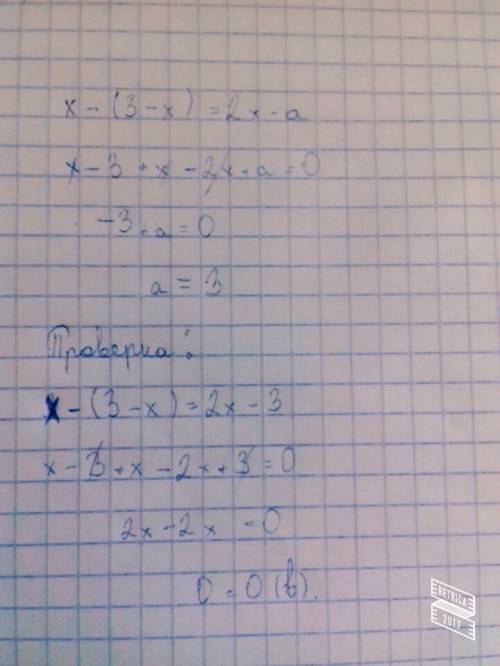 x - (3 - x) = 2x - a
x - 3 + x - 2x + a = 0
-3 + a = 0
a = 3
Проверка:
x - (3 - x) = 2x - 3
x - 3 + x - 2x + 3 = 0
2x - 2x = 0
0 = 0 (в).
RETRICA
2017